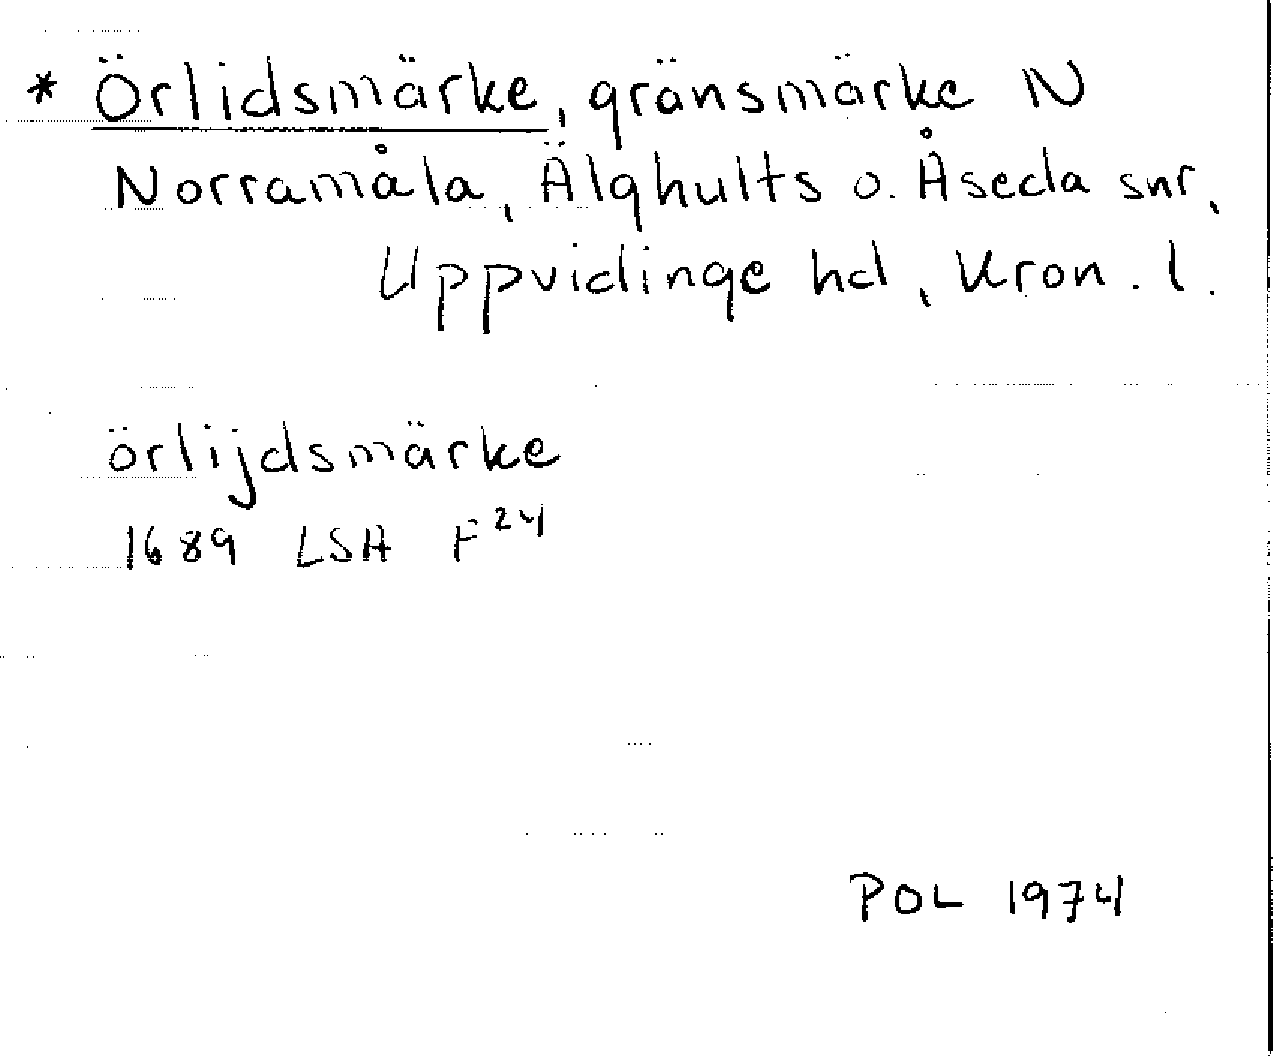 * Örlidsmärke, gränsmärke N
Norramåla, Älghults o. Åseda snr,
Uppvidinge hd, Kron. l.
örlijdsmärke
1689 LSA F²⁴
POL 1974